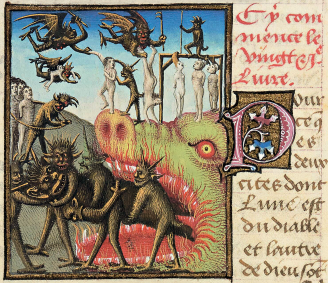 Cy com
mence le
vingt &
Liure.
Pour
ce q
es
deux
cites dont
Lune est
du diable
et lautre
de dieu sot